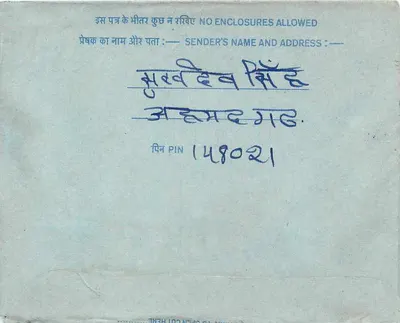 इस पत्र के भीतर कुछ न रखिए NO ENCLOSURES ALLOWED
प्रेषक का नाम और पता :— SENDER'S NAME AND ADDRESS :—
सुखदेव सिंह
अहमदगढ.
पिन PIN 148021